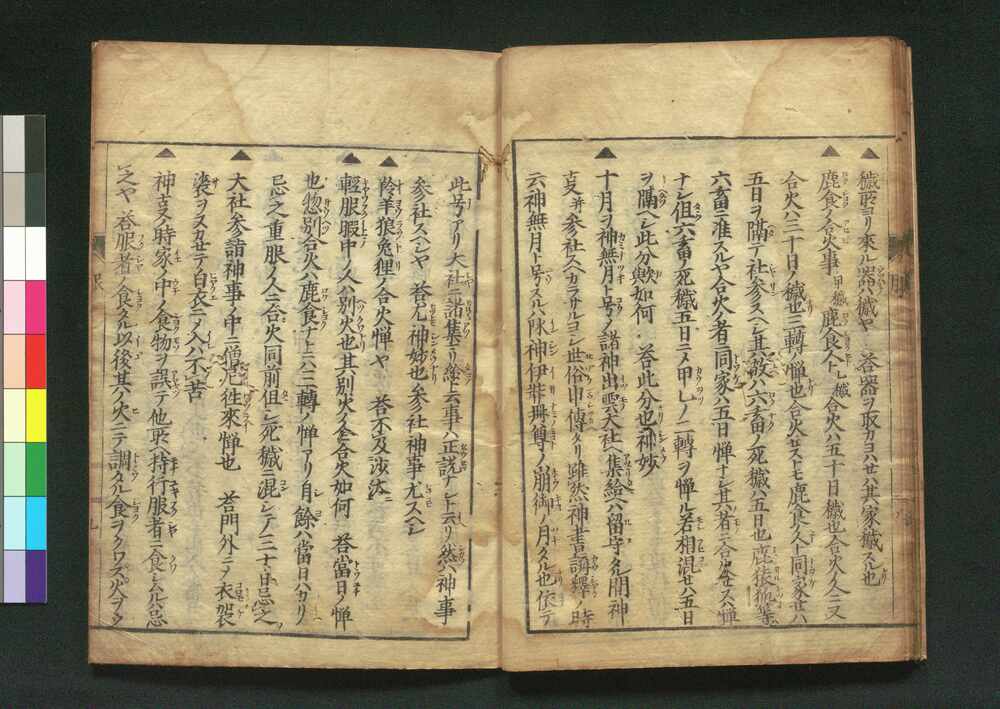 穢所ヨリ來ル器ハ穢ヤ 荅器ヲ取カヨハセハ其家穢スル也
鹿食ノ合火事 甲穢 鹿食人ト乙穢 合火ハ五十日穢也合火ノ人ニ又
合火ハ三十日ノ穢也三轉ノ憚也合火セストモ鹿食人ト同家セハ
五日ヲ隔テ社参スヘシ其故ハ六畜ノ死穢ハ五日也鹿猿狐等
六畜ニ准スルヤ合火ノ者ニ同家ハ五日憚ナシ其者ニ合火セスハ憚
ナシ但六畜ノ死穢五日ニメ甲乙ノ二轉ヲ憚ル若相混セハ五日
ヲ隔ヘシ此分歟如何 荅此分也神妙
十月ヲ神無月ト号ノ諸神出雲ノ大社ヘ集給ヘハ留守タル間神
事并参社スヘカラサルヨシ世俗申傳タリ雖然神書講釋ノ時
云神無月ト号スルハ陰神伊弉冊尊ノ崩御ノ月タル也依テ
此号アリ大社ニ諸集リ給ト云事ハ正説ナシト云リ然ハ神事
参社スヘシヤ 荅尤神妙也参社神事尤スヘシ
羚羊狼兔狸ノ合火憚ヤ 荅不及沙汰
輕服暇中ノ人ハ別火也其別火ノ人ノ合火如何 荅當日ノ憚
也惣別合火ハ鹿食ナトニハ二轉ノ憚アリ自餘ハ當日ハカリ
忌之重服ノ人ニ合火同前但シ死穢ニ混シテノ三十日忌之
大社参詣神事ノ中ニ僧尼徃來憚也 荅門外ニノ衣袈
裟ヲヌカセテ白衣ニノ入ハ不苦
神事ノ時家ノ中ノ食物ヲ誤テ他所ヘ持行服者ニ食シムルハ忌
之ヤ 荅服者ノ食タル以後其ノ火ニテ調タル食ヲクワスハヲク